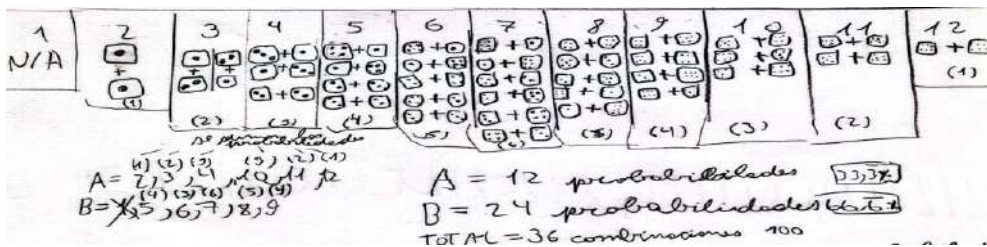 1 2 3 4 5 6 7 8 9 10 11 12
N/A
(1) (2) (3) (4) (5) (6) (5) (4) (3) (2) (1)
probabilidades
(1) (2) (3) (3) (2) (1)
A = 2, 3, 4, 10, 11, 12
(4) (5) (6) (5) (4)
B = 5, 6, 7, 8, 9
A = 12 probabilidades 33,3%
B = 24 probabilidades 66,6%
TOTAL = 36 combinaciones 100